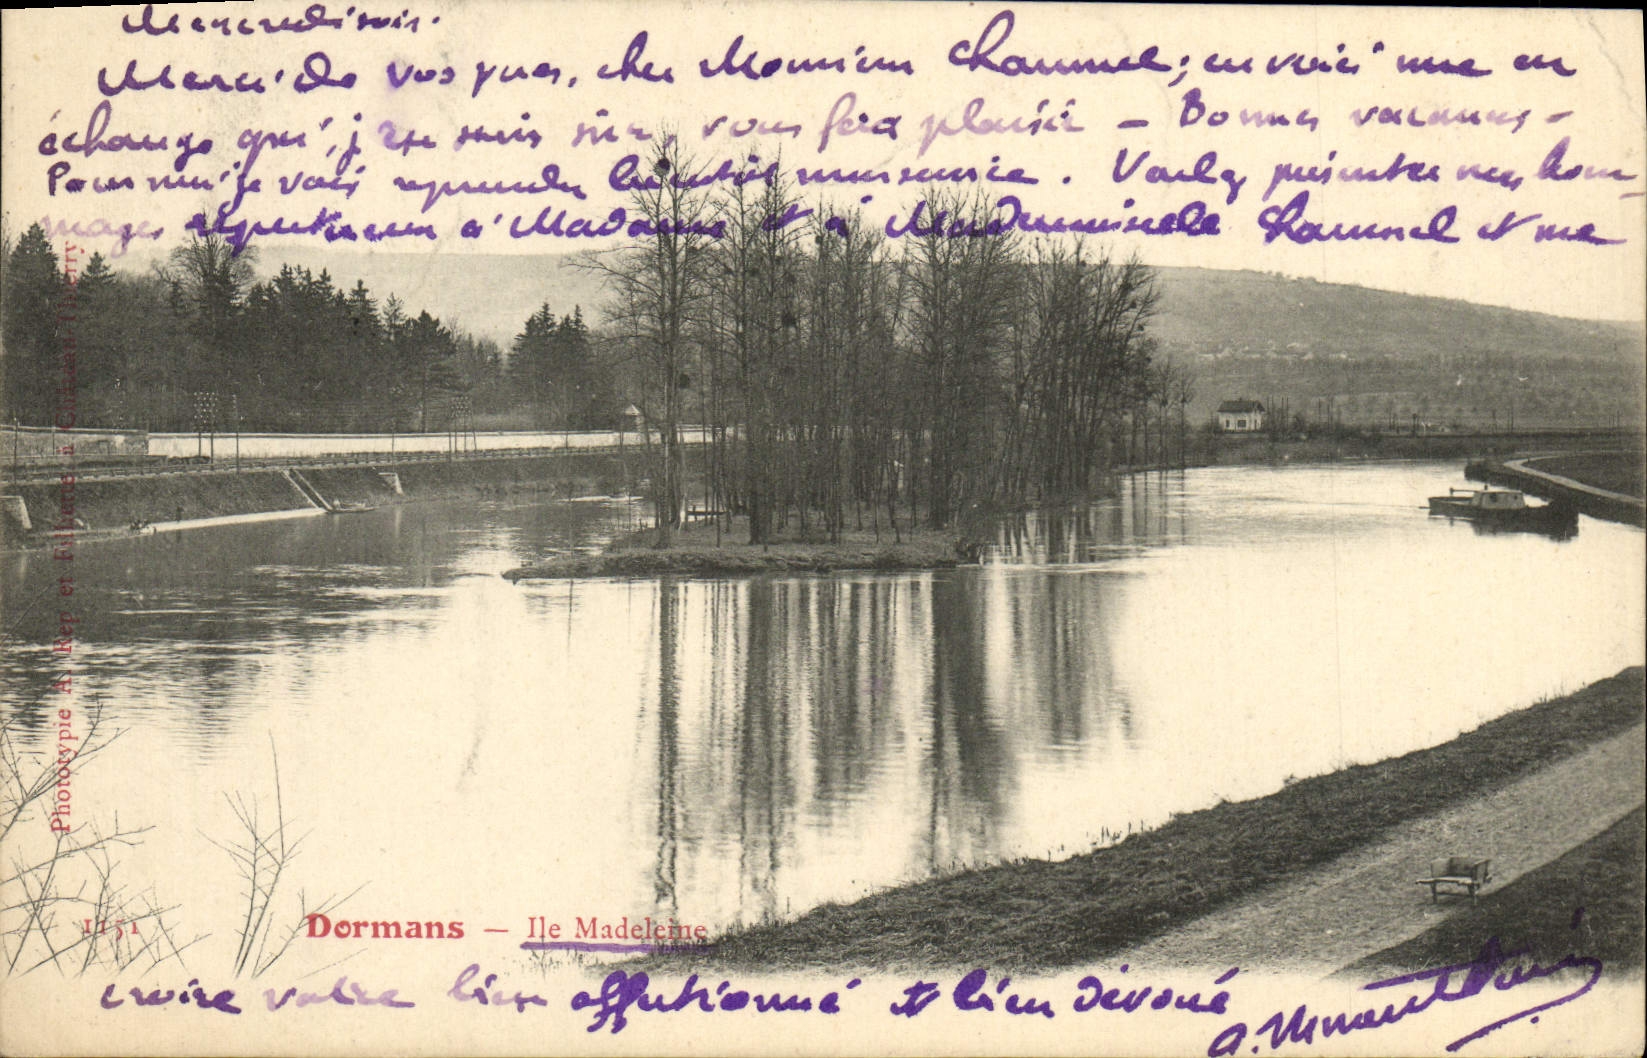 Mercredi soir.
Merci de vos vues, cher Monsieur Channel; en voici une en
échange qui, j'en suis sûr, vous fera plaisir – Bonnes vacances –
Pour moi je vais reprendre bientôt mon service. Voulez présenter mes hom-
mages respectueux à Madame et à Mademoiselle Channel et me
Phototypie A. Rep et Filliette à Château-Thierry
1151
Dormans – Ile Madeleine
croire votre bien affectionné et bien dévoué
A.